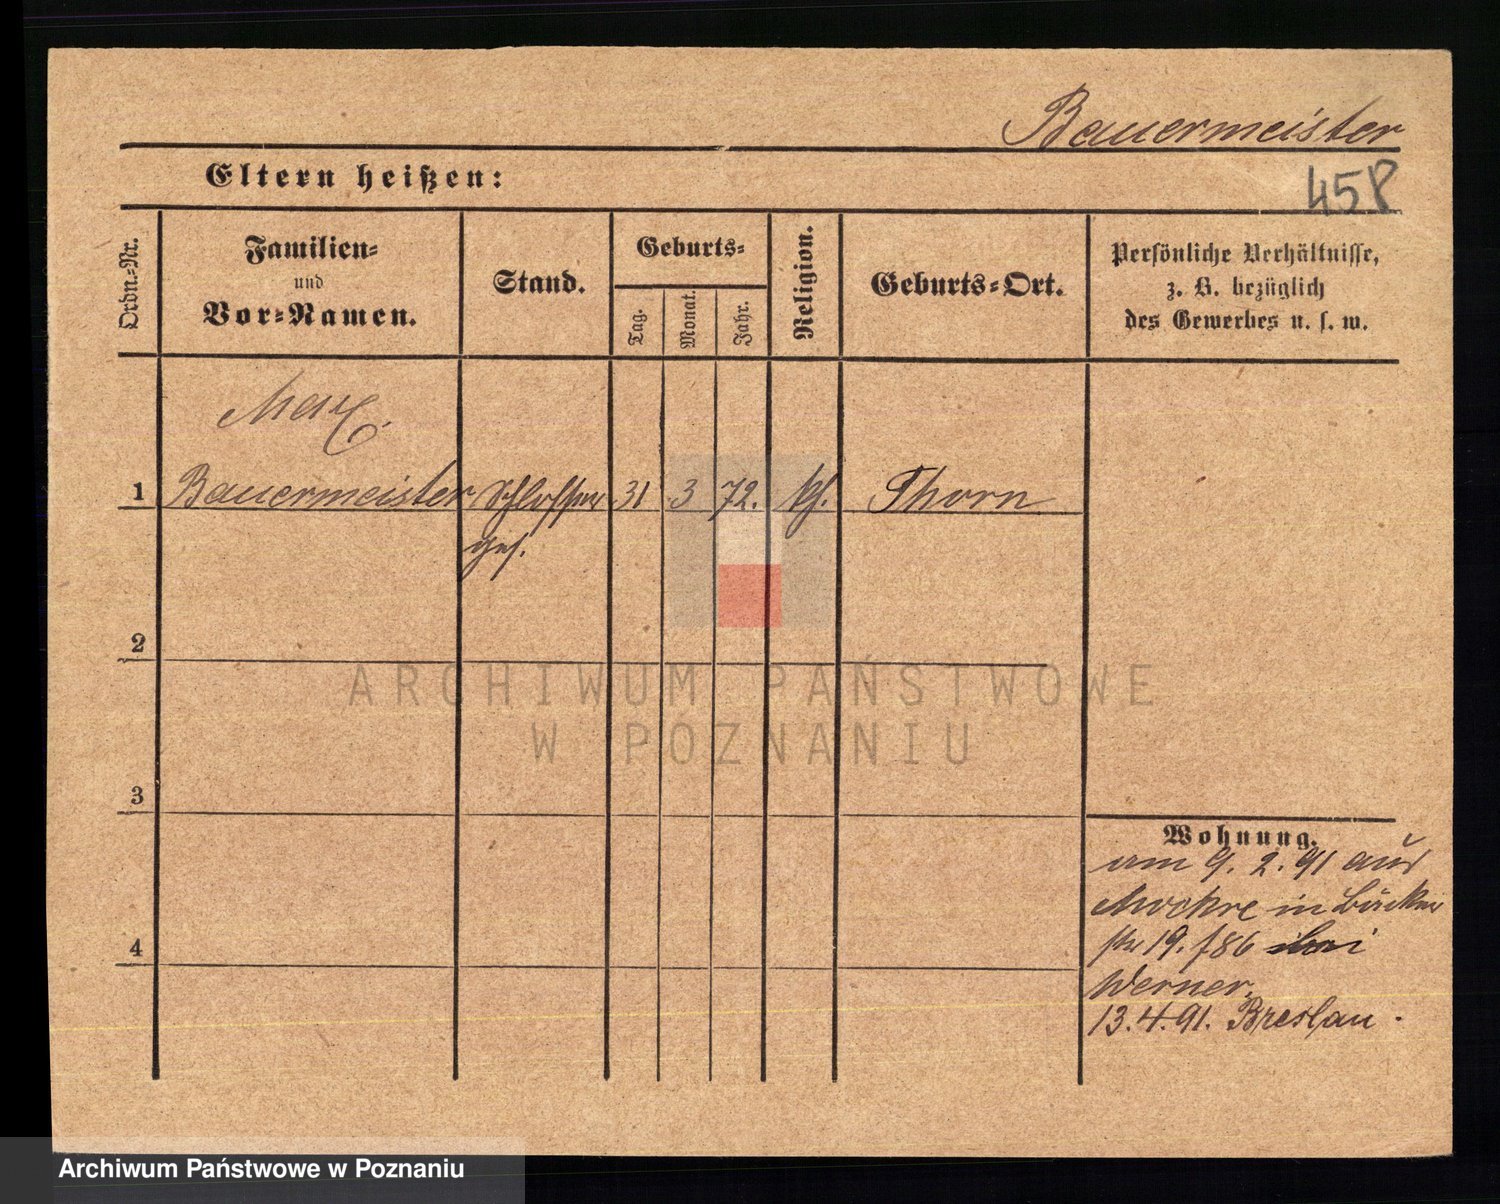 Bauermeister
Eltern heißen:
458
Ordn.-Nr.
Familien-
und
Vor-Namen.
Stand.
Geburts-
Tag.
Monat.
Jahr.
Religion.
Geburts-Ort.
Persönliche Verhältnisse,
z. B. bezüglich
des Gewerbes u. s. w.
Max
1 Bauermeister Schlosser 31 3 72. Thorn
ges.
2
3
4
Wohnung.
am 9. 2. 91 aus
Mockre in Bäcker
str 19. bei
Werner.
13.4.91. Breslau.
ARCHIWUM PAŃSTWOWE
W POZNANIU
Archiwum Państwowe w Poznaniu